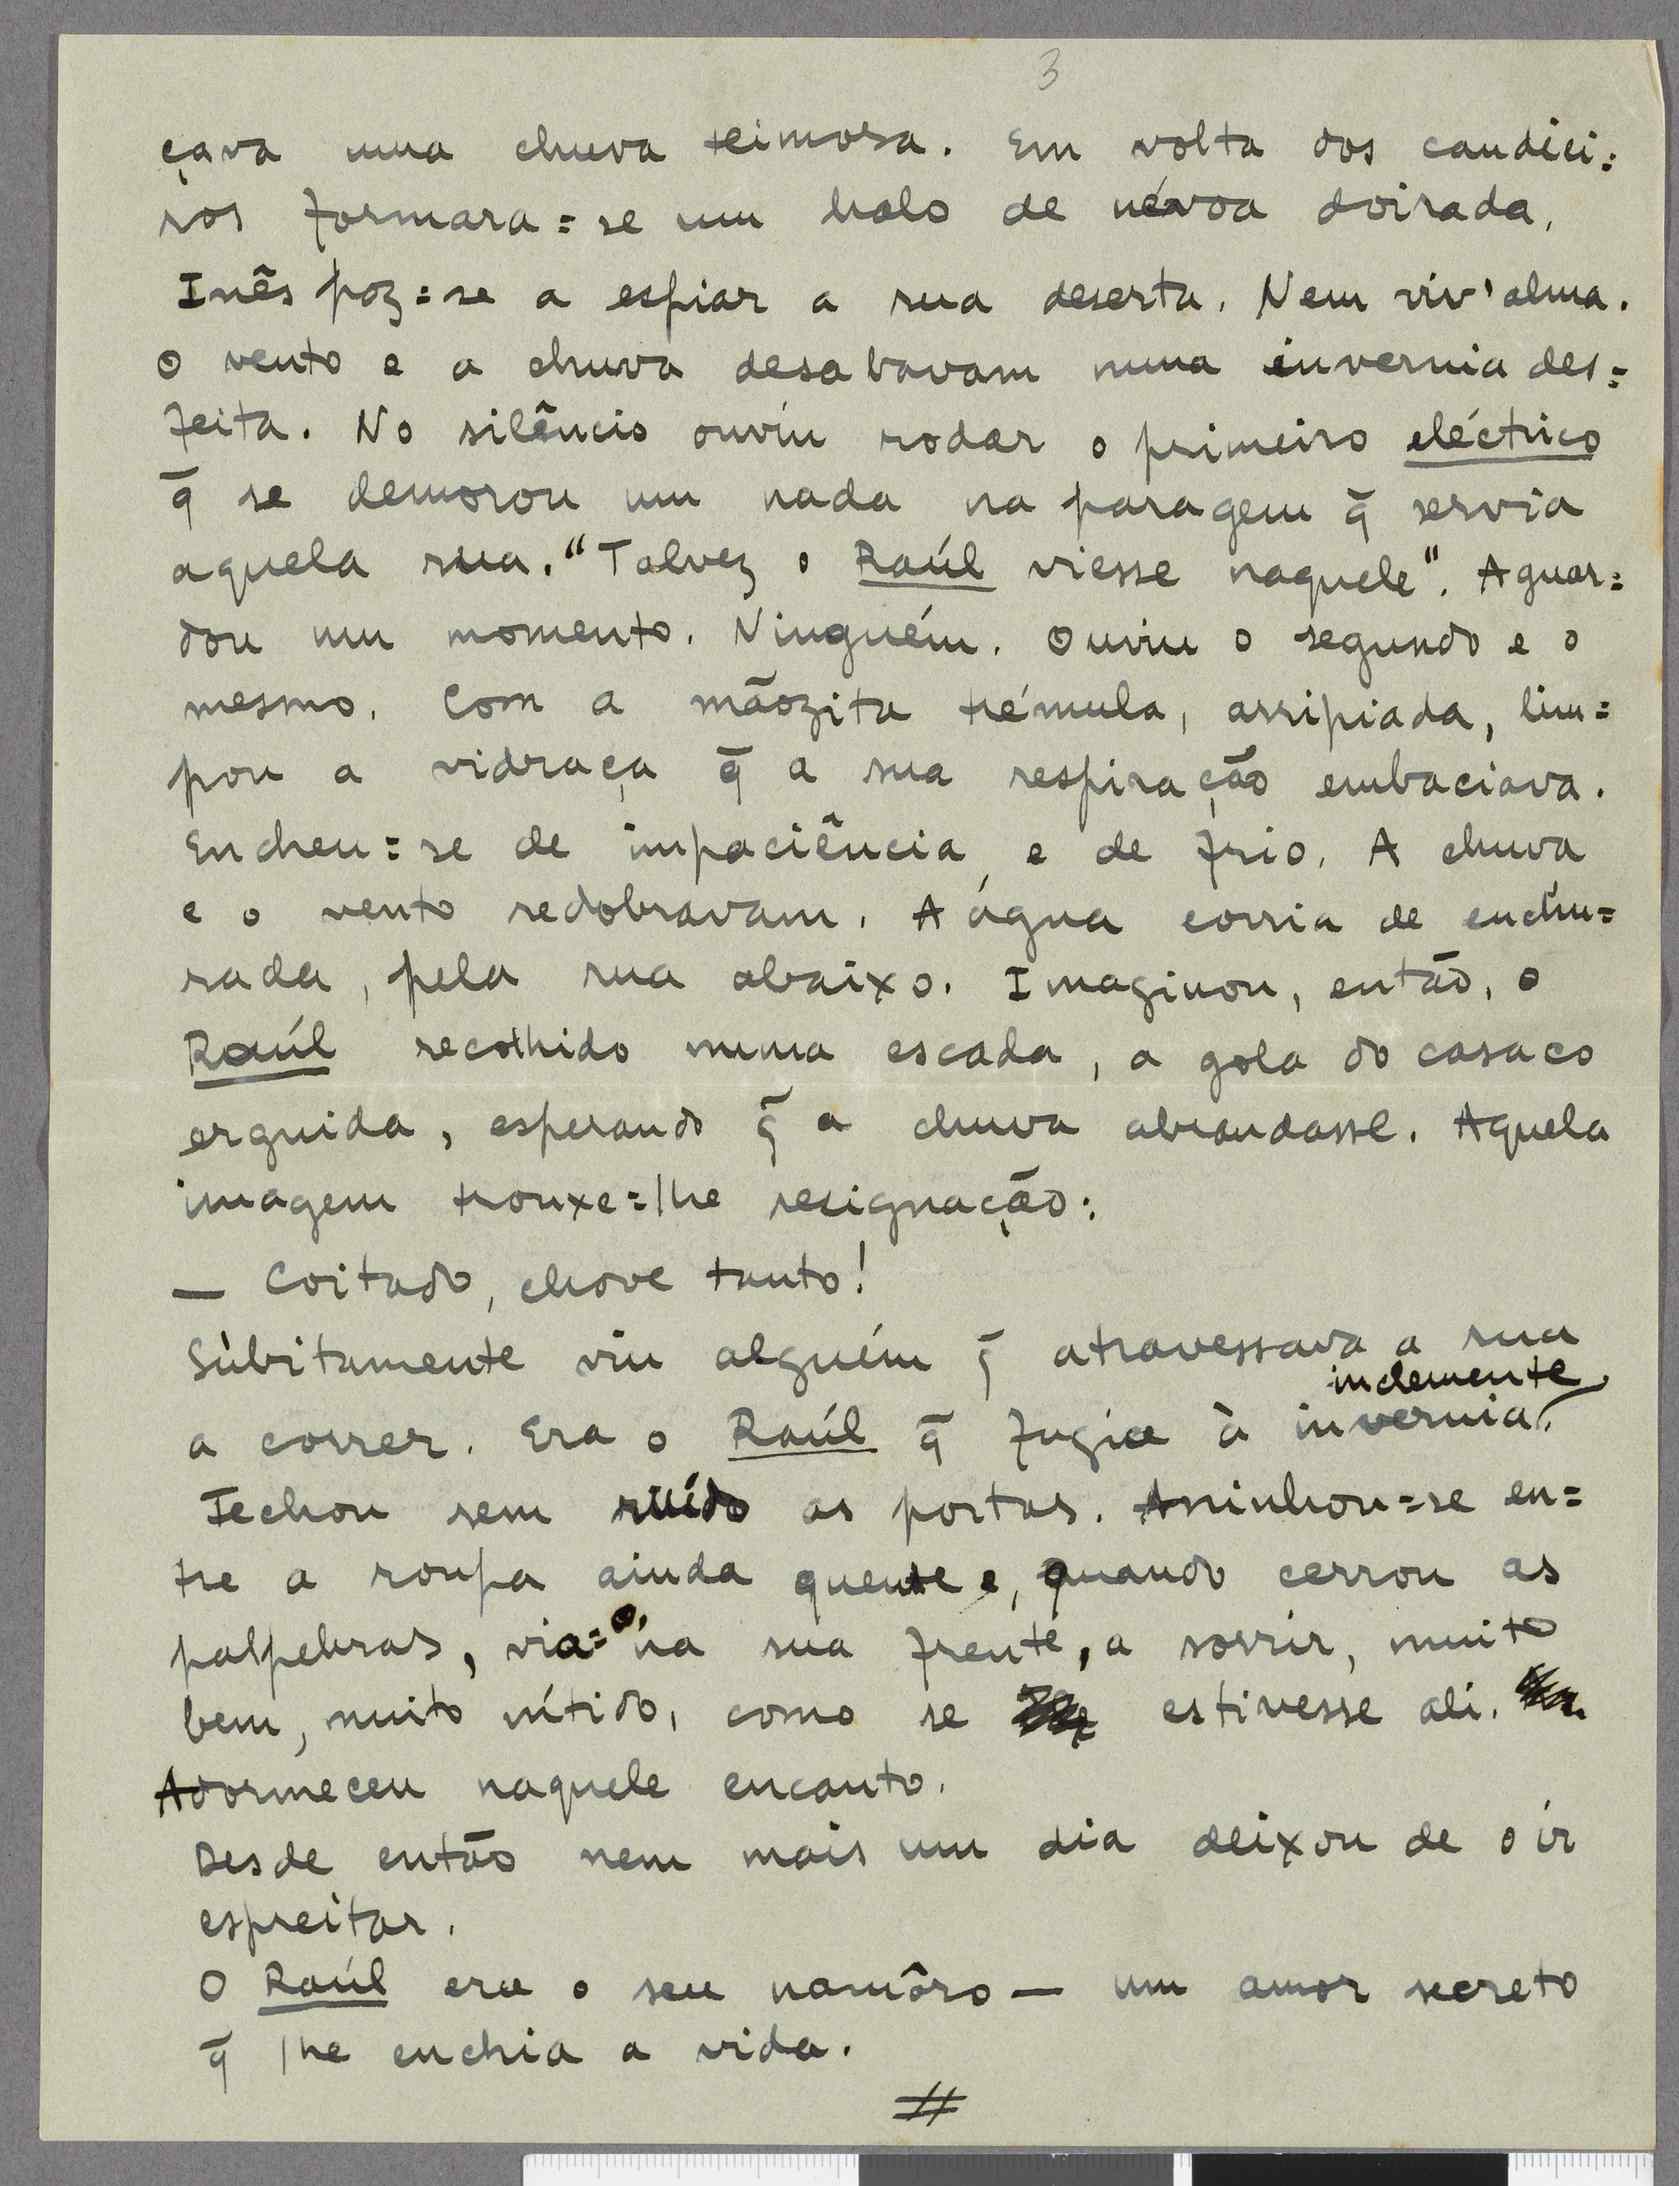 3
çava uma chuva teimosa. Em volta dos candiei=
ros formara=se um halo de névoa doirada.
Inês poz=se a espiar a rua deserta. Nem viv'alma.
O vento e a chuva desabavam numa invernia des=
feita. No silêncio ouviu rodar o primeiro eléctrico
q̃ se demorou um nada na paragem q̃ servia
aquela rua. "Talvez o Raúl viesse naquele". Aguar=
dou um momento. Ninguém. Ouviu o segundo e o
mesmo. Com a mãozita trémula, arripiada, lim=
pou a vidraça q̃ a sua respiração embaciava.
Encheu=se de impaciência e de frio. A chuva
e o vento redobravam. A água corria de enchu=
rada, pela rua abaixo. Imaginou, então, o
Raúl recolhido numa escada, a gola do casaco
erguida, esperando q̃ a chuva abrandasse. Aquela
imagem trouxe=lhe resignação:
— Coitado, chove tanto!
Sùbitamente viu alguém q̃ atravessava a rua
inclemente.
a correr. Era o Raúl q̃ fugia à invernia
Fechou sem ruído as portas. Aninhou=se en=
tre a roupa ainda quente e, quando cerrou as
palpebras, via=o, na sua frente, a sorrir, muito
bem, muito nítido, como se estivesse ali.
Adormeceu naquele encanto.
Desde então nem mais um dia deixou de o ir
espreitar.
O Raúl era o seu namôro — um amor secreto
q̃ lhe enchia a vida.